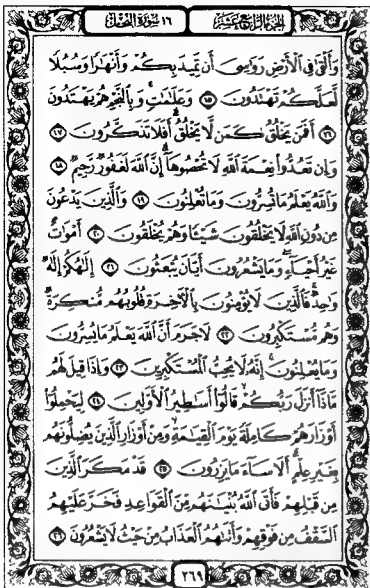 الجزء الرابع عشر
١٦ سورة النحل
وَأَلْقَىٰ فِي ٱلْأَرْضِ رَوَٰسِيَ أَن تَمِيدَ بِكُمْ وَأَنْهَٰرًا وَسُبُلًا
لَّعَلَّكُمْ تَهْتَدُونَ ١٥ وَعَلَٰمَٰتٍ ۚ وَبِٱلنَّجْمِ هُمْ يَهْتَدُونَ
١٦ أَفَمَن يَخْلُقُ كَمَن لَّا يَخْلُقُ ۗ أَفَلَا تَذَكَّرُونَ ١٧
وَإِن تَعُدُّوا۟ نِعْمَةَ ٱللَّهِ لَا تُحْصُوهَآ ۗ إِنَّ ٱللَّهَ لَغَفُورٌ رَّحِيمٌ ١٨
وَٱللَّهُ يَعْلَمُ مَا تُسِرُّونَ وَمَا تُعْلِنُونَ ١٩ وَٱلَّذِينَ يَدْعُونَ
مِن دُونِ ٱللَّهِ لَا يَخْلُقُونَ شَيْـًٔا وَهُمْ يُخْلَقُونَ ٢٠ أَمْوَٰتٌ
غَيْرُ أَحْيَآءٍ ۖ وَمَا يَشْعُرُونَ أَيَّانَ يُبْعَثُونَ ٢١ إِلَٰهُكُمْ إِلَٰهٌ
وَٰحِدٌ ۚ فَٱلَّذِينَ لَا يُؤْمِنُونَ بِٱلْـَٔاخِرَةِ قُلُوبُهُم مُّنكِرَةٌ
وَهُم مُّسْتَكْبِرُونَ ٢٢ لَا جَرَمَ أَنَّ ٱللَّهَ يَعْلَمُ مَا يُسِرُّونَ
وَمَا يُعْلِنُونَ ۚ إِنَّهُۥ لَا يُحِبُّ ٱلْمُسْتَكْبِرِينَ ٢٣ وَإِذَا قِيلَ لَهُم
مَّاذَآ أَنزَلَ رَبُّكُمْ ۙ قَالُوٓا۟ أَسَٰطِيرُ ٱلْأَوَّلِينَ ٢٤ لِيَحْمِلُوٓا۟
أَوْزَارَهُمْ كَامِلَةً يَوْمَ ٱلْقِيَٰمَةِ ۙ وَمِنْ أَوْزَارِ ٱلَّذِينَ يُضِلُّونَهُم
بِغَيْرِ عِلْمٍ ۗ أَلَا سَآءَ مَا يَزِرُونَ ٢٥ قَدْ مَكَرَ ٱلَّذِينَ
مِن قَبْلِهِمْ فَأَتَى ٱللَّهُ بُنْيَٰنَهُم مِّنَ ٱلْقَوَاعِدِ فَخَرَّ عَلَيْهِمُ
ٱلسَّقْفُ مِن فَوْقِهِمْ وَأَتَىٰهُمُ ٱلْعَذَابُ مِنْ حَيْثُ لَا يَشْعُرُونَ ٢٦
٢٦٩